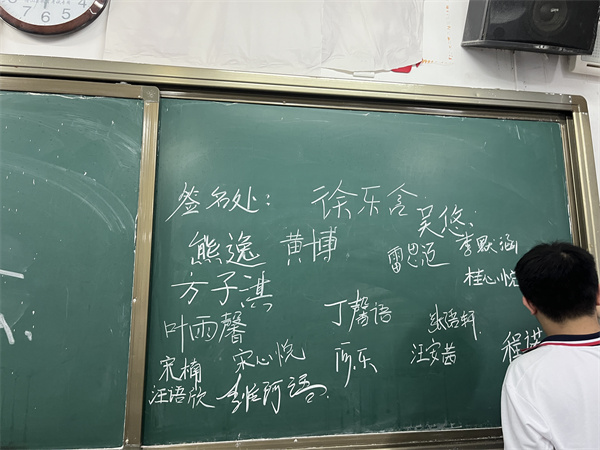 签名处： 徐乐含
吴悠
熊逸 黄博 雷思迈 李默涵
方子淇 桂心悦
叶雨馨 丁馨语 语轩
宋楠 宋心悦 乐 汪安茜 程诺
汪语欣
7 6 5